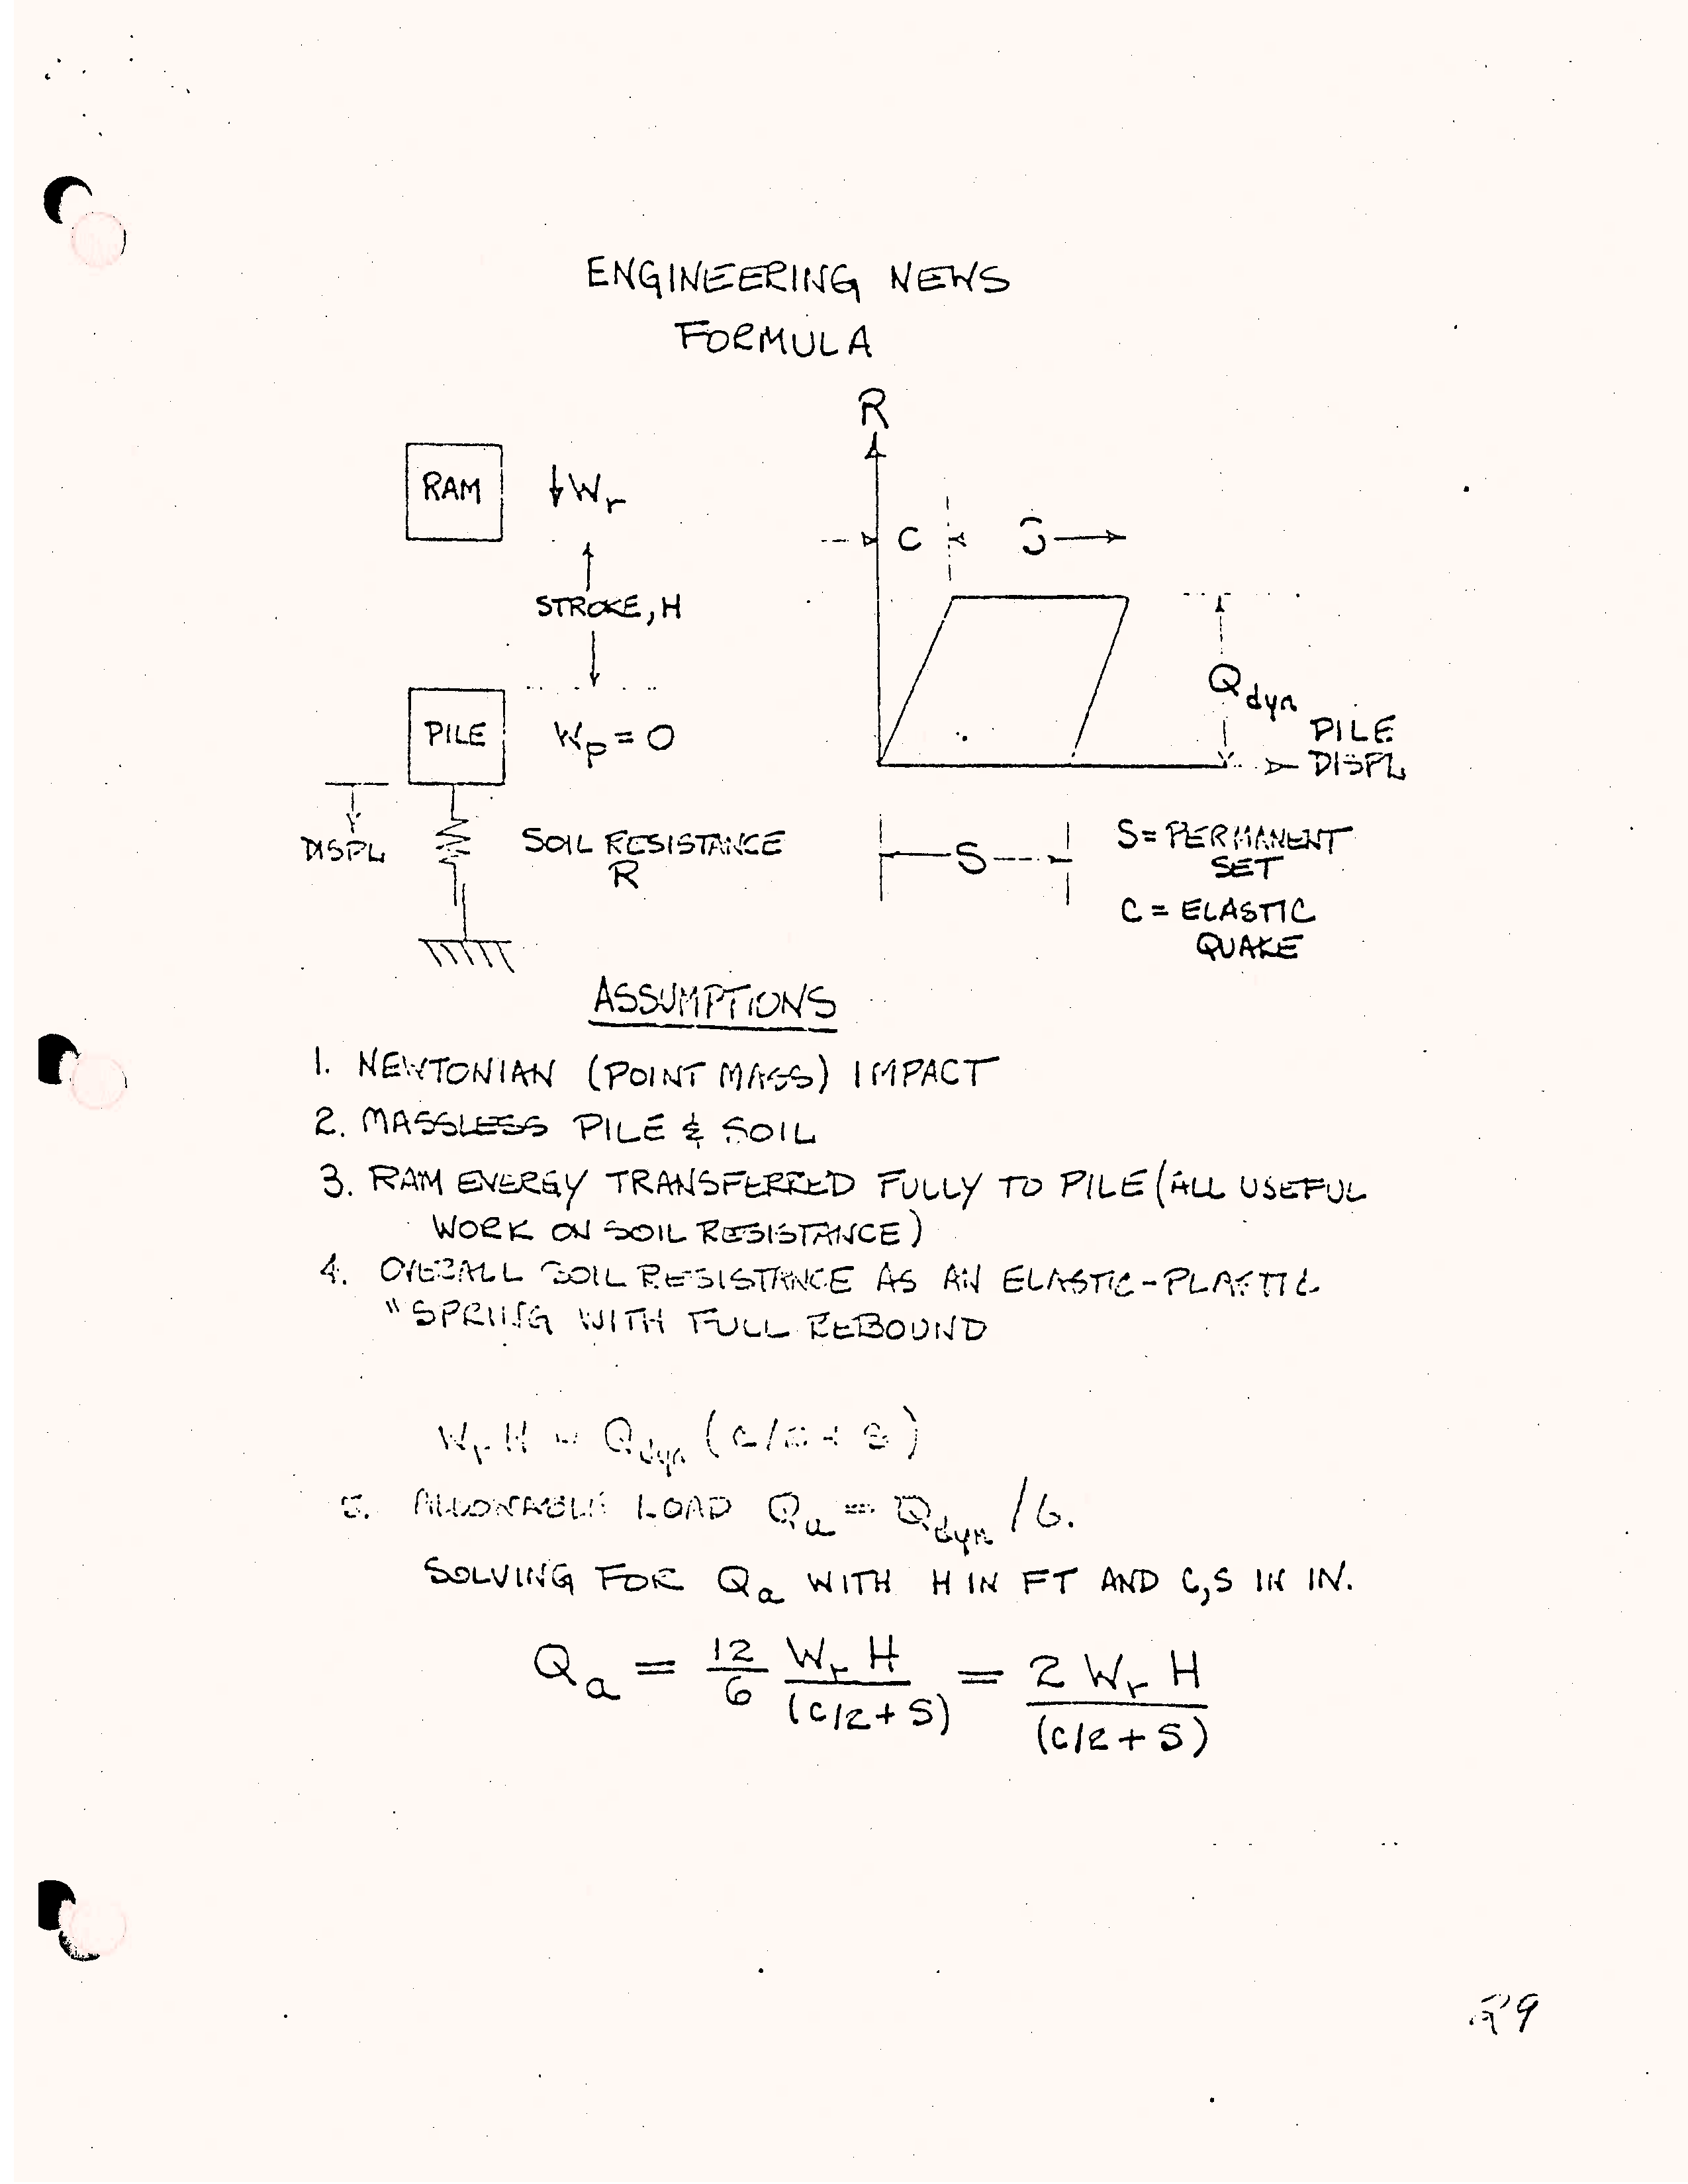 ENGINEERING NEWS
FORMULA
RAM
↓Wr
STROKE, H
PILE
Wp = 0
DISPL
SOIL RESISTANCE
R
R
C
S
Qdyn
PILE
DISPL
S
S = PERMANENT
SET
C = ELASTIC
QUAKE
ASSUMPTIONS
1. NEWTONIAN (POINT MASS) IMPACT
2. MASSLESS PILE & SOIL
3. RAM ENERGY TRANSFERRED FULLY TO PILE (ALL USEFUL
WORK ON SOIL RESISTANCE)
4. OVERALL SOIL RESISTANCE AS AN ELASTIC-PLASTIC
"SPRING WITH FULL REBOUND
Wr H = Qdyn (C/2 + S)
5. ALLOWABLE LOAD Qa = Qdyn /6.
SOLVING FOR Qa WITH H IN FT AND C,S IN IN.
Qa = 12/6 Wr H/(C/2 + S) = 2 Wr H/(C/2 + S)